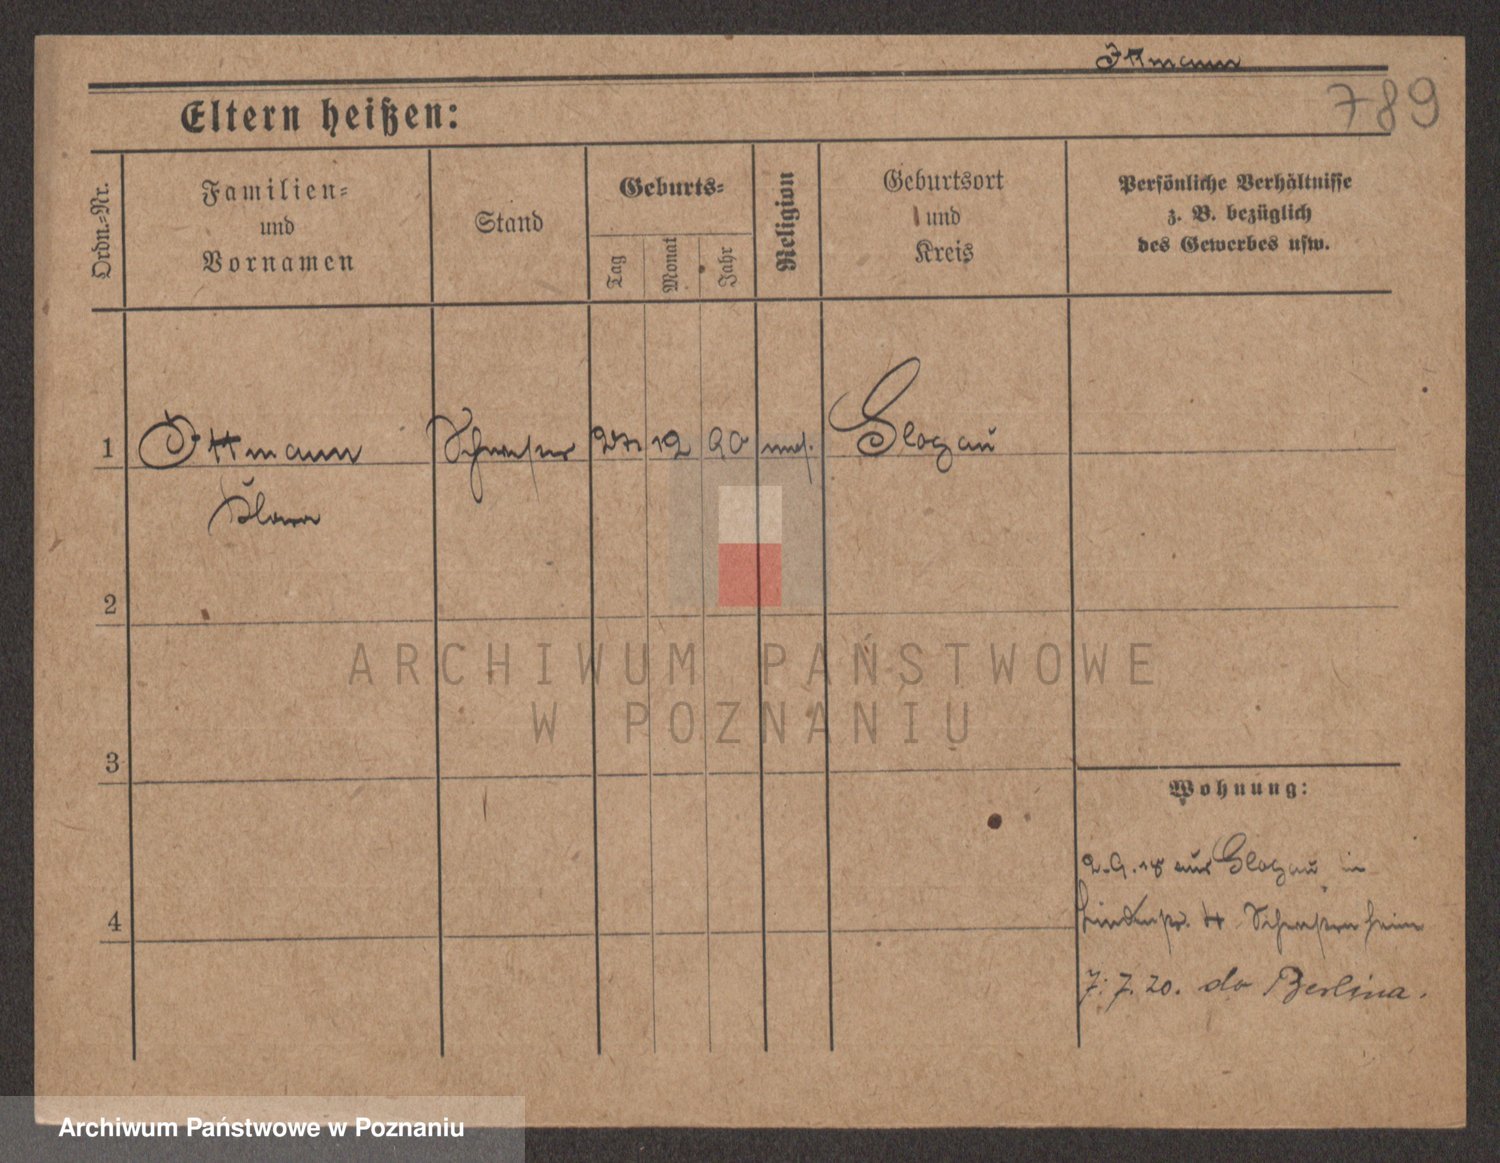 Ittmann
789
Eltern heißen:
Ordn.-Nr.
Familien-
und
Vornamen
Stand
Geburts-
Tag
Monat
Jahr
Religion
Geburtsort
und
Kreis
Persönliche Verhältnisse
z. B. bezüglich
des Gewerbes usw.
1
Ittmann Schwester 27. 12 90 Glogau
Klara
2
ARCHIWUM PAŃSTWOWE
W POZNANIU
3
Wohnung:
2.9.18 aus Glogau in
4
Lindenstr. 4 Schwesternheim
7.7.20. do Berlina.
Archiwum Państwowe w Poznaniu